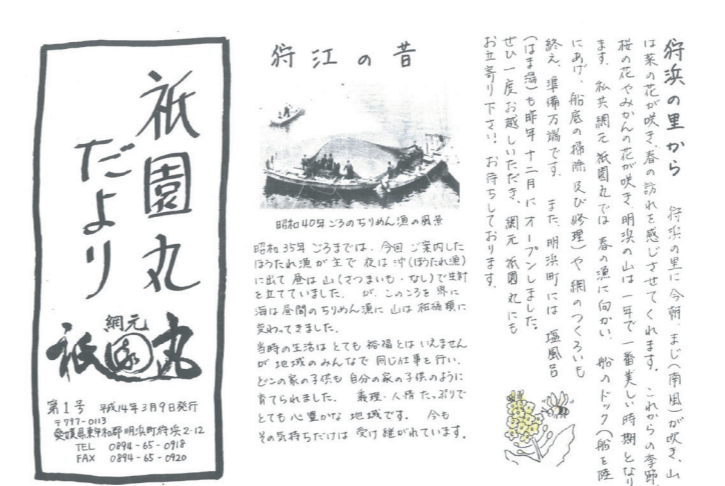 狩浜の里から
狩浜の里に今朝、まじ(南風)が吹き、山
は菜の花が咲き、春の訪れを感じさせてくれます。これからの季節
桜の花やみかんの花が咲き、明浜の山は一年で一番美しい時期となり
ます。私共網元祇園丸では春の漁に向かい、船のドック(船を陸
にあげ、船底の掃除及び修理)や網のつくろいも
終え、準備万端です。また、明浜町には塩風呂
(はま湯)も昨年十二月にオープンしました。
ぜひ一度お越しいただき、網元祇園丸にも
お立寄り下さい。お待ちしております。
狩江の昔
昭和40年ごろのちりめん漁の風景
昭和35年ごろまでは、今回ご案内した
ほうたれ漁が主で夜は沖(ほうたれ漁)
に出て昼は山(さつまいも・なし)で生計
を立てていました。が、このころを堺に
海は昼間のちりめん漁に山は柑橘類に
変わってきました。
当時の生活はとても裕福とはいえません
が地域のみんなで同じ仕事を行い、
どこの家の子供も自分の家の子供のように
育てられました。義理・人情たっぷりで
とても心豊かな地域です。今も
その気持ちだけは受け継がれています。
祇園丸
だより
網元
祇園丸
第1号 平成14年3月9日発行
〒797-0113
愛媛県東宇和郡明浜町狩浜2-12
TEL 0894-65-0918
FAX 0894-65-0920